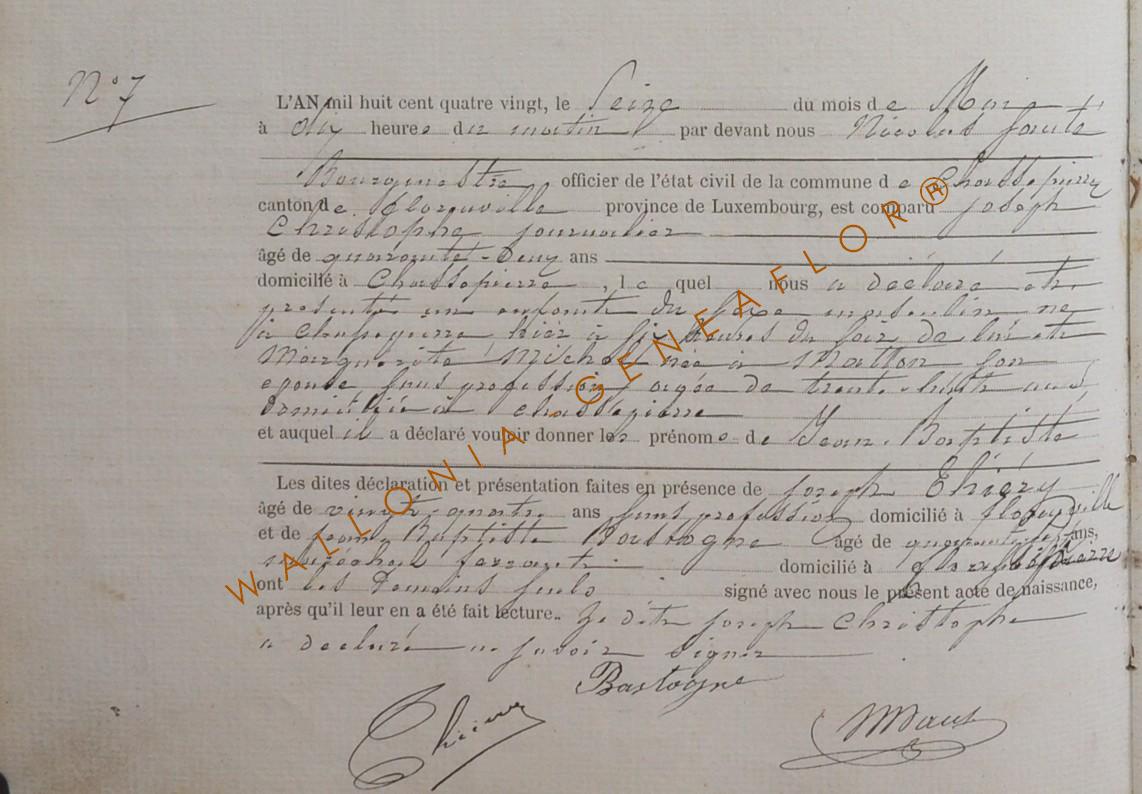 N° 7
L'AN mil huit cent quatre vingt, le Seize du mois de Mai
à dix heures du matin par devant nous Nicolas
Bourgmestre officier de l'état civil de la commune de Chassepierre
canton de Florenville province de Luxembourg, est comparu Joseph
Christophe journalier
âgé de quarante-Deux ans
domicilié à Chassepierre, le quel nous a déclaré et
présenté un enfant du sexe masculin né
à chassepierre hier à six heures du soir de lui et
Marguerite Michel née à Matton son
épouse sans profession agée de trente-huit ans
domiciliée à chassepierre
et auquel il a déclaré vouloir donner les prénoms de Jean-Baptiste
Les dites déclaration et présentation faites en présence de Joseph Thiéry
âgé de vingt-quatre ans sans profession domicilié à florenville
et de Jean Baptiste Bastogne âgé de ans,
maréchal ferrant domicilié à chassepierre
ont les temoins seuls signé avec nous le présent acte de naissance,
après qu'il leur en a été fait lecture. Le dit Joseph Christophe
a declaré ne savoir signer
Bastogne
Thiery
WALLONIA GENEAFLOR ®